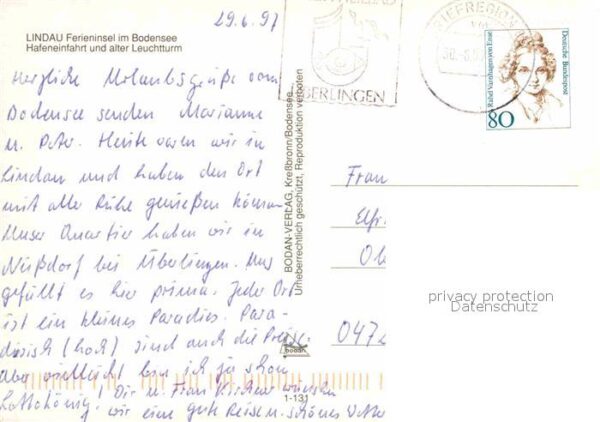 29.6.97
LINDAU Ferieninsel im Bodensee
Hafeneinfahrt und alter Leuchtturm
Herzliche Urlaubsgrüße vom
Bodensee senden Marianne
u. Peter. Heute waren wir in
Lindau und haben den Ort
mit aller Ruhe genießen können
Unser Quartier haben wir in
Nußdorf bei Überlingen. Uns
gefällt es hier prima. Jeder Ort
ist ein kleines Paradies. Para-
diesisch (hoch) sind auch die Preise.
Aber vielleicht bin ich ja schon
Lottokönig! Dir u. Frau wünschen
wir eine gute Reise u. schönes Wetter
BODAN-VERLAG, Kreßbronn/Bodensee
Urheberrechtlich geschützt, Reproduktion verboten
bodan
1-131
ÜBERLINGEN
BRIEFREGION
30.-6.
Deutsche Bundespost
Rahel Varnhagen von Ense
80
Frau
Elfr
Ol
047
privacy protection
Datenschutz